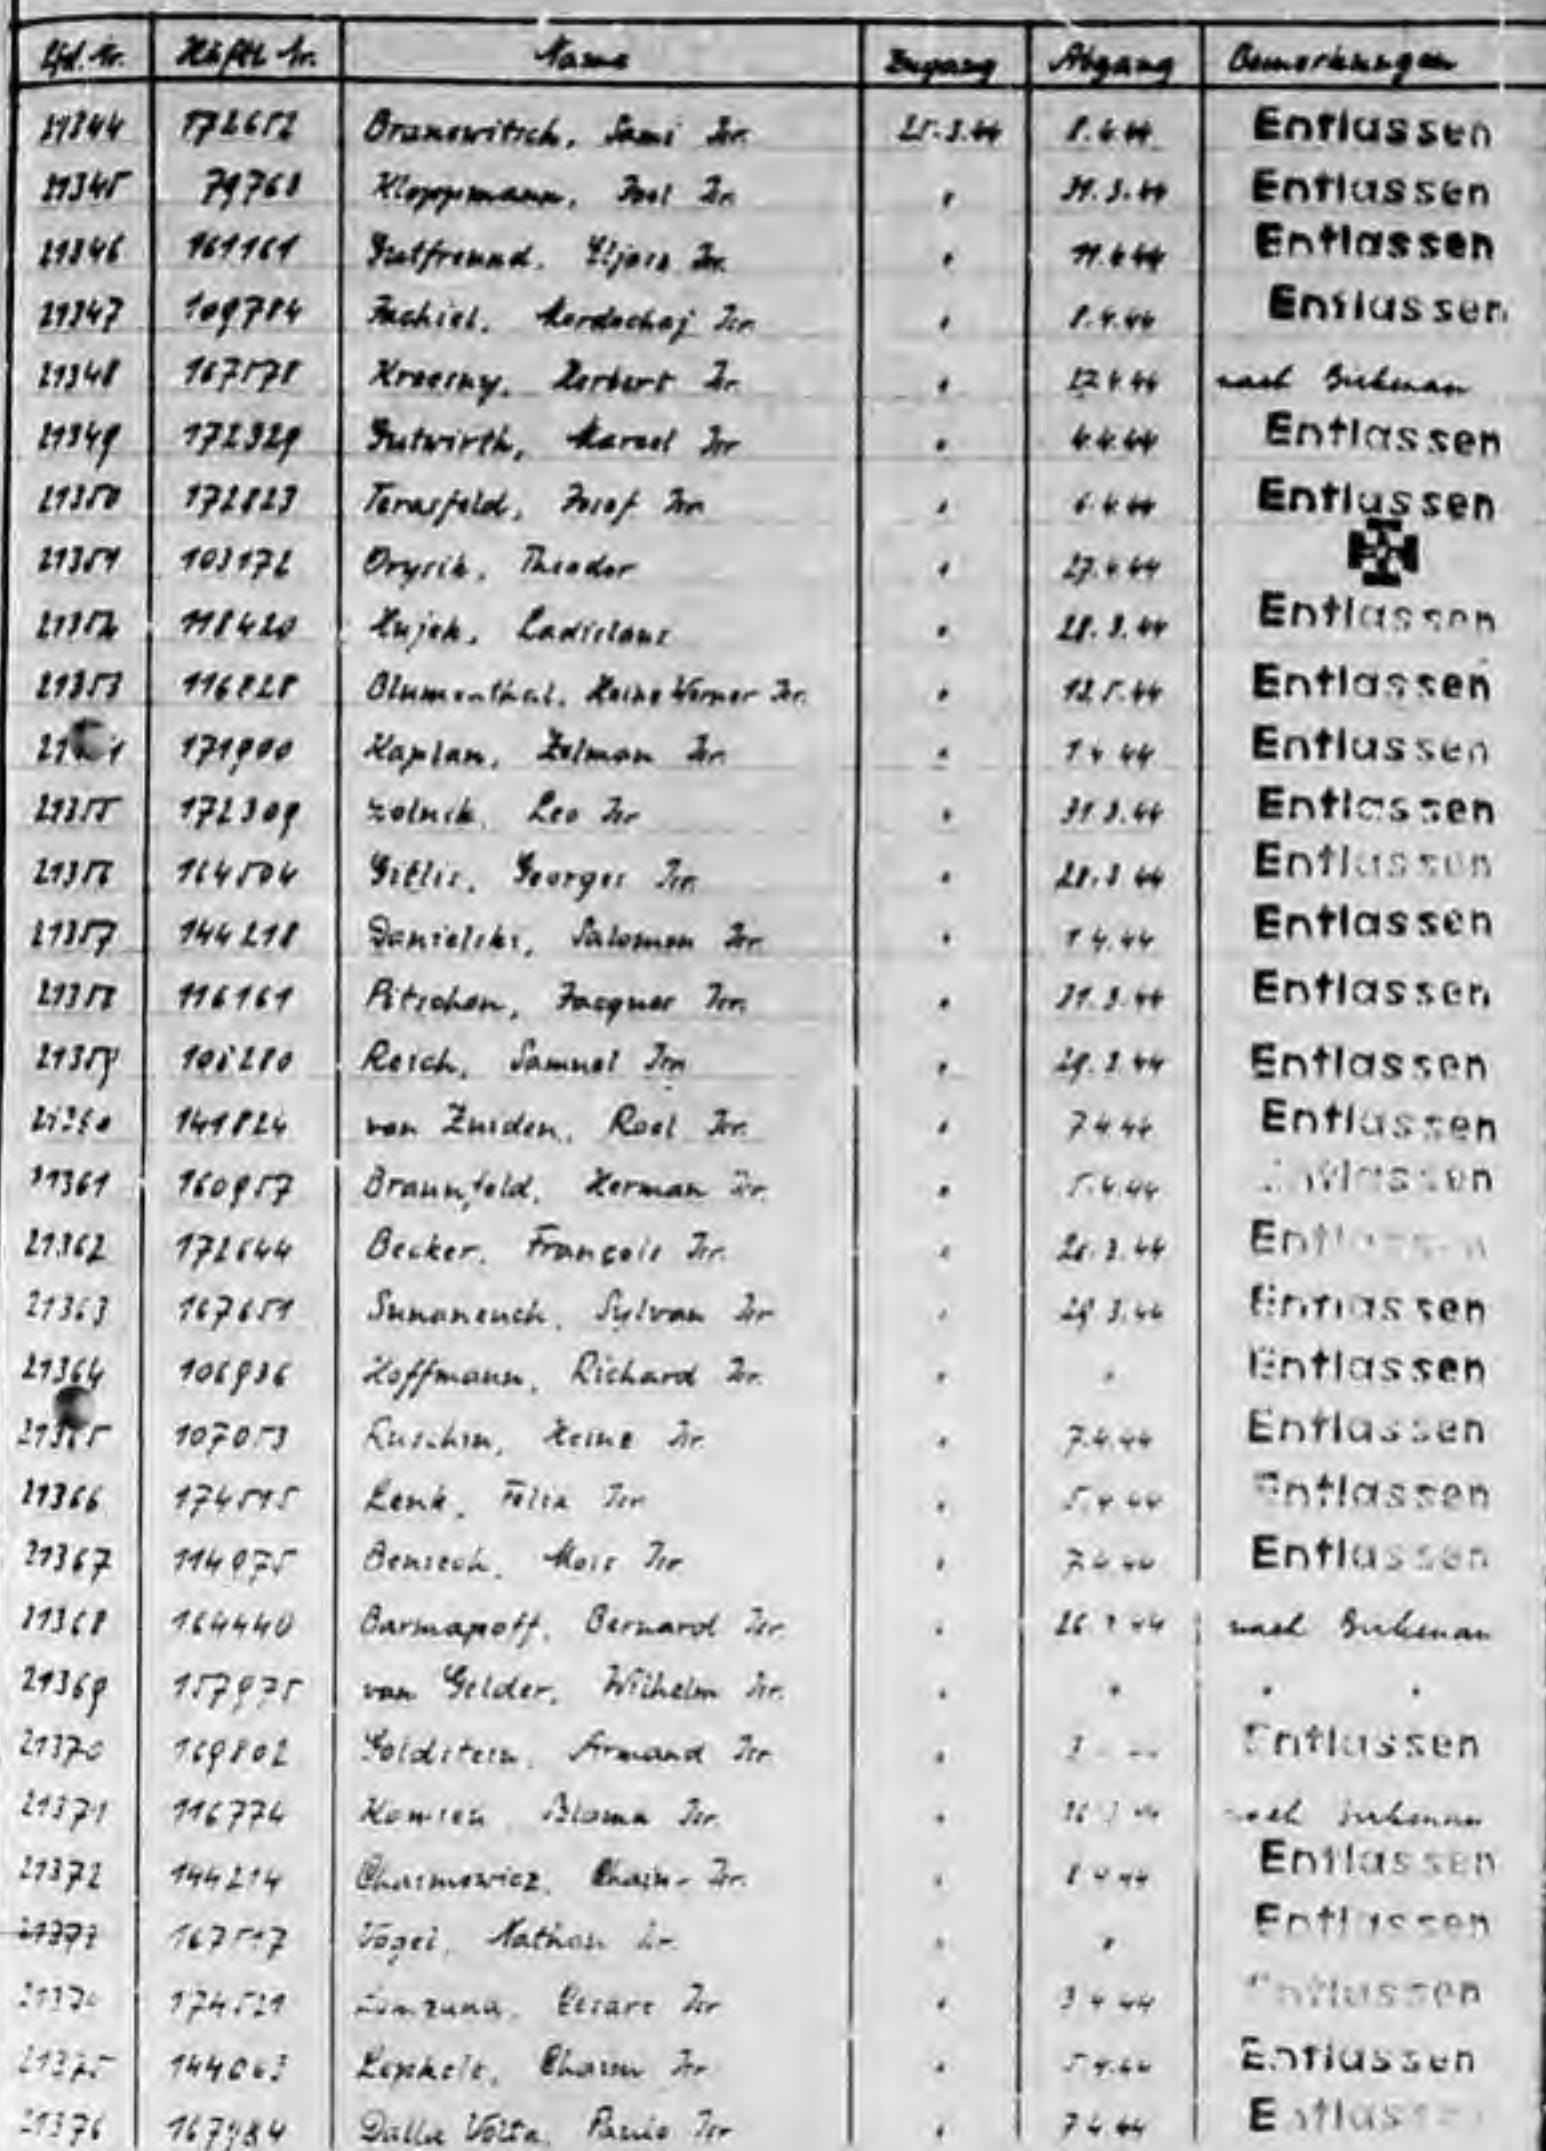 Lfd. Nr. Häftl. Nr. Name Zugang Abgang Bemerkungen
21344 172652 Branowitsch, Sami Isr. 25.3.44 8.4.44 Entlassen
21345 79768 Kloppmann, Isr. " 31.3.44 Entlassen
21346 161161 Gutfreund, Isr. " 11.4.44 Entlassen
21347 109784 Jachiel, Mordochaj Isr. " 8.4.44 Entlassen
21348 167578 Herbert Isr. " 12.4.44 nach Birkenau
21349 172329 Gutwirth, Marcel Isr " 4.4.44 Entlassen
21350 172823 Josef Isr " 6.4.44 Entlassen
21351 103172 Orysik, Theodor " 27.4.44
21352 118420 Hujek, Ladislaus " 28.3.44 Entlassen
21353 116828 Blumenthal, Heinz Werner Isr. " 12.5.44 Entlassen
171900 Kaplan, Zelman Isr. " 1 4 44 Entlassen
21355 172309 Zolnik, Leo Isr " 31.3.44 Entlassen
21356 164504 Gitlis, Georges Isr. " 28.3 44 Entlassen
21357 144218 Danielski, Salomon Isr. " 1 4.44 Entlassen
21358 116161 Pitschon, Jacques Isr. " 31.3.44 Entlassen
21359 Reich, Samuel Isr " 29.3.44 Entlassen
21360 141824 van Zuiden, Roel Isr. " 7 4 44 Entlassen
21361 160957 Braunfeld, Herman Isr. " 5.4.44 Entlassen
21362 172644 Becker, François Isr. " 44 Entlassen
21363 167651 Sylvan Isr " 29 3.44 Entlassen
21364 106936 Hoffmann, Richard Isr. " " Entlassen
21365 107053 Luschin, Heinz Isr. " 7.4.44 Entlassen
21366 174515 Lenk, Felix Isr " 5.4 44 Entlassen
21367 114975 Mois Isr " 7 4.44 Entlassen
21368 164440 Barmapoff, Bernard Isr. " 26 3 44 nach Birkenau
21369 157975 van Gelder, Wilhelm Isr. " " " "
21370 169802 Goldstein, Armand Isr. " Entlassen
21371 116774 Isr. " nach Birkenau
21372 144214 Chaimowicz, Chaim Isr. " 8 4 44 Entlassen
21373 167517 Vogel, Nathan Isr. " " Entlassen
174521 Cesare Isr " 3 4 44 Entlassen
21375 144063 Chaim Isr " 5 4.44 Entlassen
21376 167984 Dalla Volta, Paulo Isr " 7 4 44 Entlassen